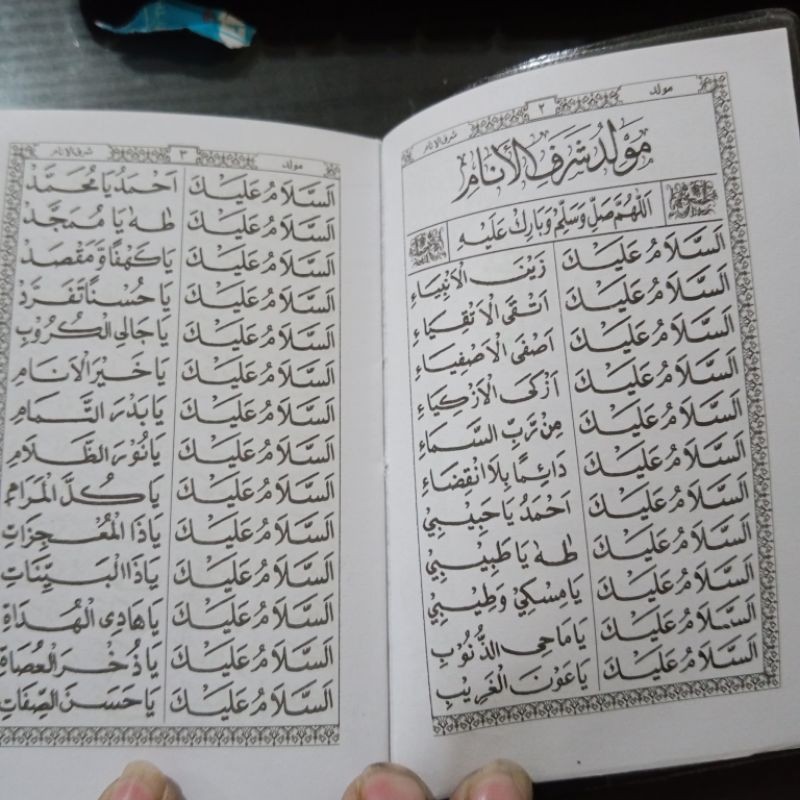 مولد ٢ شرف الانام
مَوْلِدُ شَرَفِ الْأَنَامِ
اَللّٰهُمَّ صَلِّ وَسَلِّمْ وَبَارِكْ عَلَيْهِ
اَلسَّلَامُ عَلَيْكَ زَيْنَ الْاَنْبِيَاءِ
اَلسَّلَامُ عَلَيْكَ اَتْقَى الْاَتْقِيَاءِ
اَلسَّلَامُ عَلَيْكَ اَصْفَى الْاَصْفِيَاءِ
اَلسَّلَامُ عَلَيْكَ اَزْكَى الْاَزْكِيَاءِ
اَلسَّلَامُ عَلَيْكَ مِنْ رَبِّ السَّمَاءِ
اَلسَّلَامُ عَلَيْكَ دَائِمًا بِلَا انْقِضَاءِ
اَلسَّلَامُ عَلَيْكَ اَحْمَدُ يَا حَبِيْبِيْ
اَلسَّلَامُ عَلَيْكَ طٰهٰ يَا طَبِيْبِيْ
اَلسَّلَامُ عَلَيْكَ يَا مِسْكِيْ وَطِيْبِيْ
اَلسَّلَامُ عَلَيْكَ يَا مَاحِى الذُّنُوْبِ
اَلسَّلَامُ عَلَيْكَ يَا عَوْنَ الْغَرِيْبِ
مولد ٣ شرف الانام
اَلسَّلَامُ عَلَيْكَ اَحْمَدُ يَا مُحَمَّدْ
اَلسَّلَامُ عَلَيْكَ طٰهٰ يَا مُمَجَّدْ
اَلسَّلَامُ عَلَيْكَ يَا كَهْفًا وَمَقْصَدْ
اَلسَّلَامُ عَلَيْكَ يَا حُسْنًا تَفَرَّدْ
اَلسَّلَامُ عَلَيْكَ يَا جَالِى الْكُرُوْبِ
اَلسَّلَامُ عَلَيْكَ يَا خَيْرَ الْاَنَامِ
اَلسَّلَامُ عَلَيْكَ يَا بَدْرَ التَّمَامِ
اَلسَّلَامُ عَلَيْكَ يَا نُوْرَ الظَّلَامِ
اَلسَّلَامُ عَلَيْكَ يَا كُلَّ الْمَرَامِ
اَلسَّلَامُ عَلَيْكَ يَا ذَا الْمُعْجِزَاتِ
اَلسَّلَامُ عَلَيْكَ يَا ذَا الْبَيِّنَاتِ
اَلسَّلَامُ عَلَيْكَ يَا هَادِى الْهُدَاةِ
اَلسَّلَامُ عَلَيْكَ يَا ذُخْرَ الْعُصَاةِ
اَلسَّلَامُ عَلَيْكَ يَا حَسَنَ الصِّفَاتِ